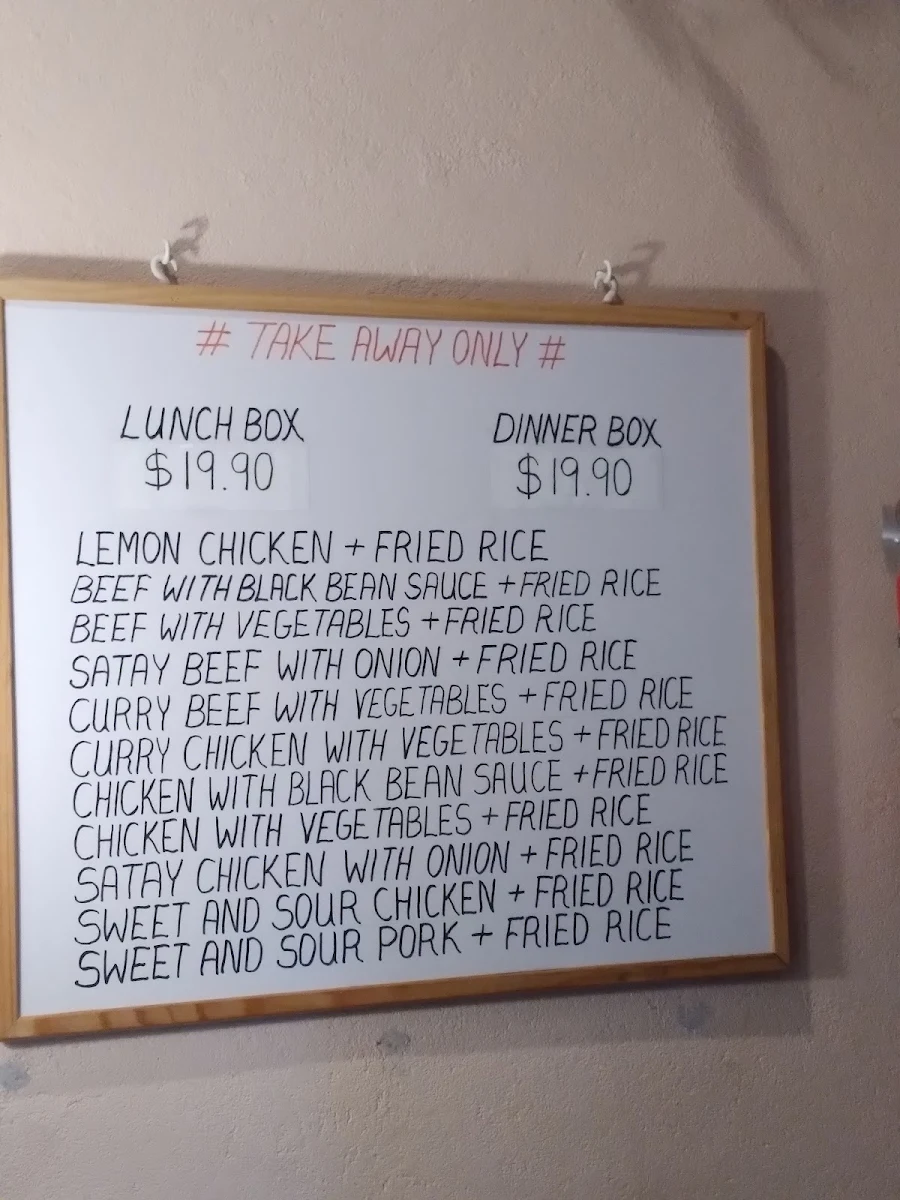 # TAKE AWAY ONLY #
LUNCH BOX DINNER BOX
$19.90 $19.90
LEMON CHICKEN + FRIED RICE
BEEF WITH BLACK BEAN SAUCE + FRIED RICE
BEEF WITH VEGETABLES + FRIED RICE
SATAY BEEF WITH ONION + FRIED RICE
CURRY BEEF WITH VEGETABLES + FRIED RICE
CURRY CHICKEN WITH VEGETABLES + FRIED RICE
CHICKEN WITH BLACK BEAN SAUCE + FRIED RICE
CHICKEN WITH VEGETABLES + FRIED RICE
SATAY CHICKEN WITH ONION + FRIED RICE
SWEET AND SOUR CHICKEN + FRIED RICE
SWEET AND SOUR PORK + FRIED RICE